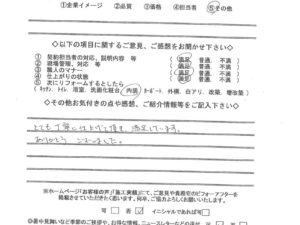 ①企業イメージ ②品質 ③価格 ④担当者 ⑤その他
◇以下の項目に関するご意見、ご感想をお聞かせ下さい◇
① 契約担当者の対応、説明内容 等 満足 普通、不満
② 現場管理、対応 等 満足 普通、不満
③ 職人のマナー 満足 普通、不満
④ 仕上がりの状態 満足 普通、不満
⑤ 次にリフォームするとしたら
(キッチン、トイレ、浴室、洗面化粧台、内装、カーポート、外構、白アリ、改築、増改築)
◇その他お気付きの点や感想、ご紹介情報等をご記入下さい◇
とても丁寧に仕上げて頂き、満足しています。
ありがとう ございました。
※ホームページ「お客様の声」「施工実績」にて、ご意見や貴邸宅のビフォーアフターを
掲載させていただきたく思います。何卒、ご協力よろしくお願いいたします。
可 否 イニシャルであれば可
◎暑中見舞いなど季節のご挨拶や、お得な情報、ニュースレターなどの送付